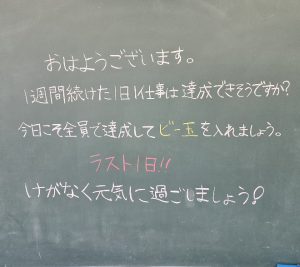 おはようございます。
1週間続けた1日1仕事は達成できそうですか?
今日こそ全員で達成してビー玉を入れましょう。
ラスト1日!!
けがなく元気に過ごしましょう!